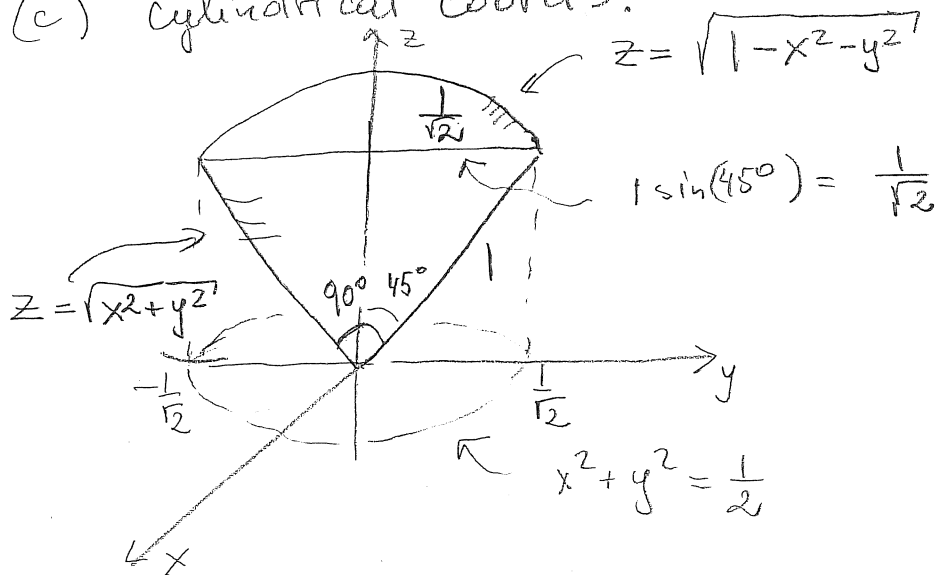 (c) cylindrical coords.
z
z = √(1-x²-y²)
1/√2
1 sin(45°) = 1/√2
90° 45°
1
z = √(x²+y²)
-1/√2
1/√2
y
x² + y² = 1/2
x